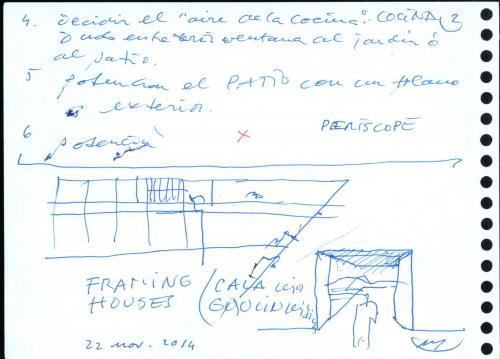 4. decidir el "aire de la cocina". COCINA 2
Dudo entre ventana al jardín ó
al patio.
5 potencian el PATIO con un plano
exterior.
6 potencia
PERISCOPE
FRAMING
HOUSES
CAVA
22 nov. 2014